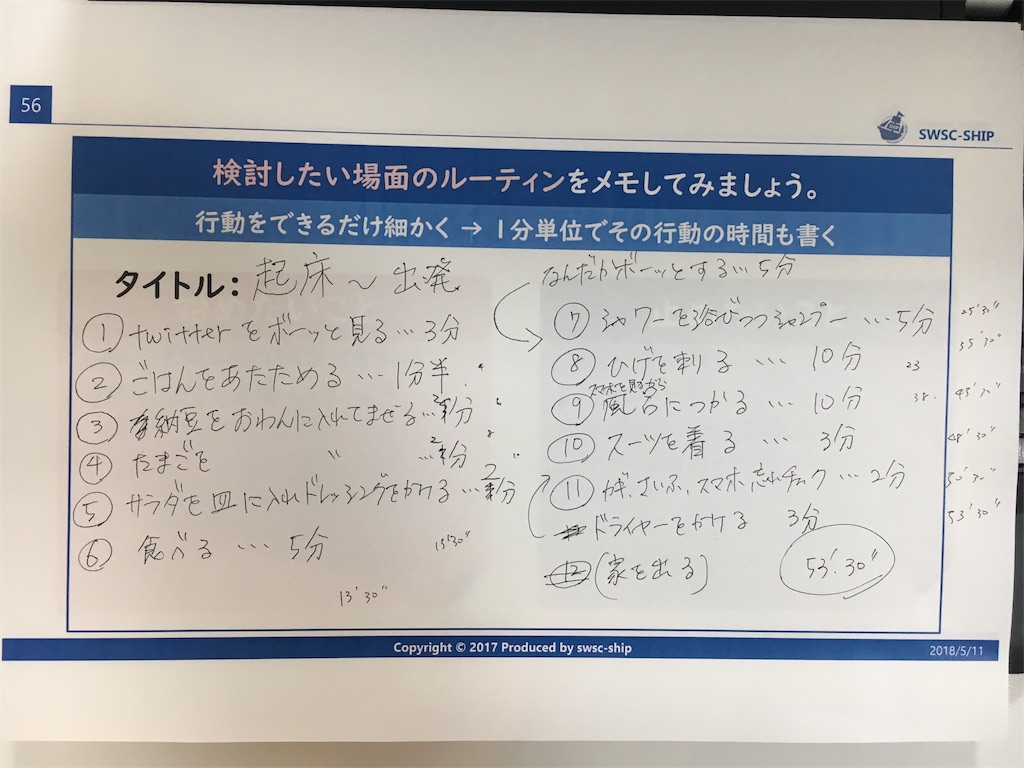 56
SWSC-SHIP
検討したい場面のルーティンをメモしてみましょう。
行動をできるだけ細かく → 1分単位でその行動の時間も書く
タイトル: 起床〜出発
① twitterをボーッと見る…3分
② ごはんをあたためる…1分半
③ 納豆をおわんに入れてまぜる…2分
④ たまごを 〃 …2分
⑤ サラダを皿に入れドレッシングをかける…2分
⑥ 食べる…5分
15'30"
13'30"
なんだかボーッとする…5分
⑦ シャワーを浴びつつシャンプー…5分
25'30"
⑧ ひげを剃る…10分
35'30"
23
スマホを見ながら
⑨ 風呂につかる…10分
38
⑩ スーツを着る…3分
48'30"
⑪ カギ、さいふ、スマホ忘れチェック…2分
50'30"
ドライヤーをかける 3分
53'30"
⑫ (家を出る)
53'30"
Copyright © 2017 Produced by swsc-ship
2018/5/11